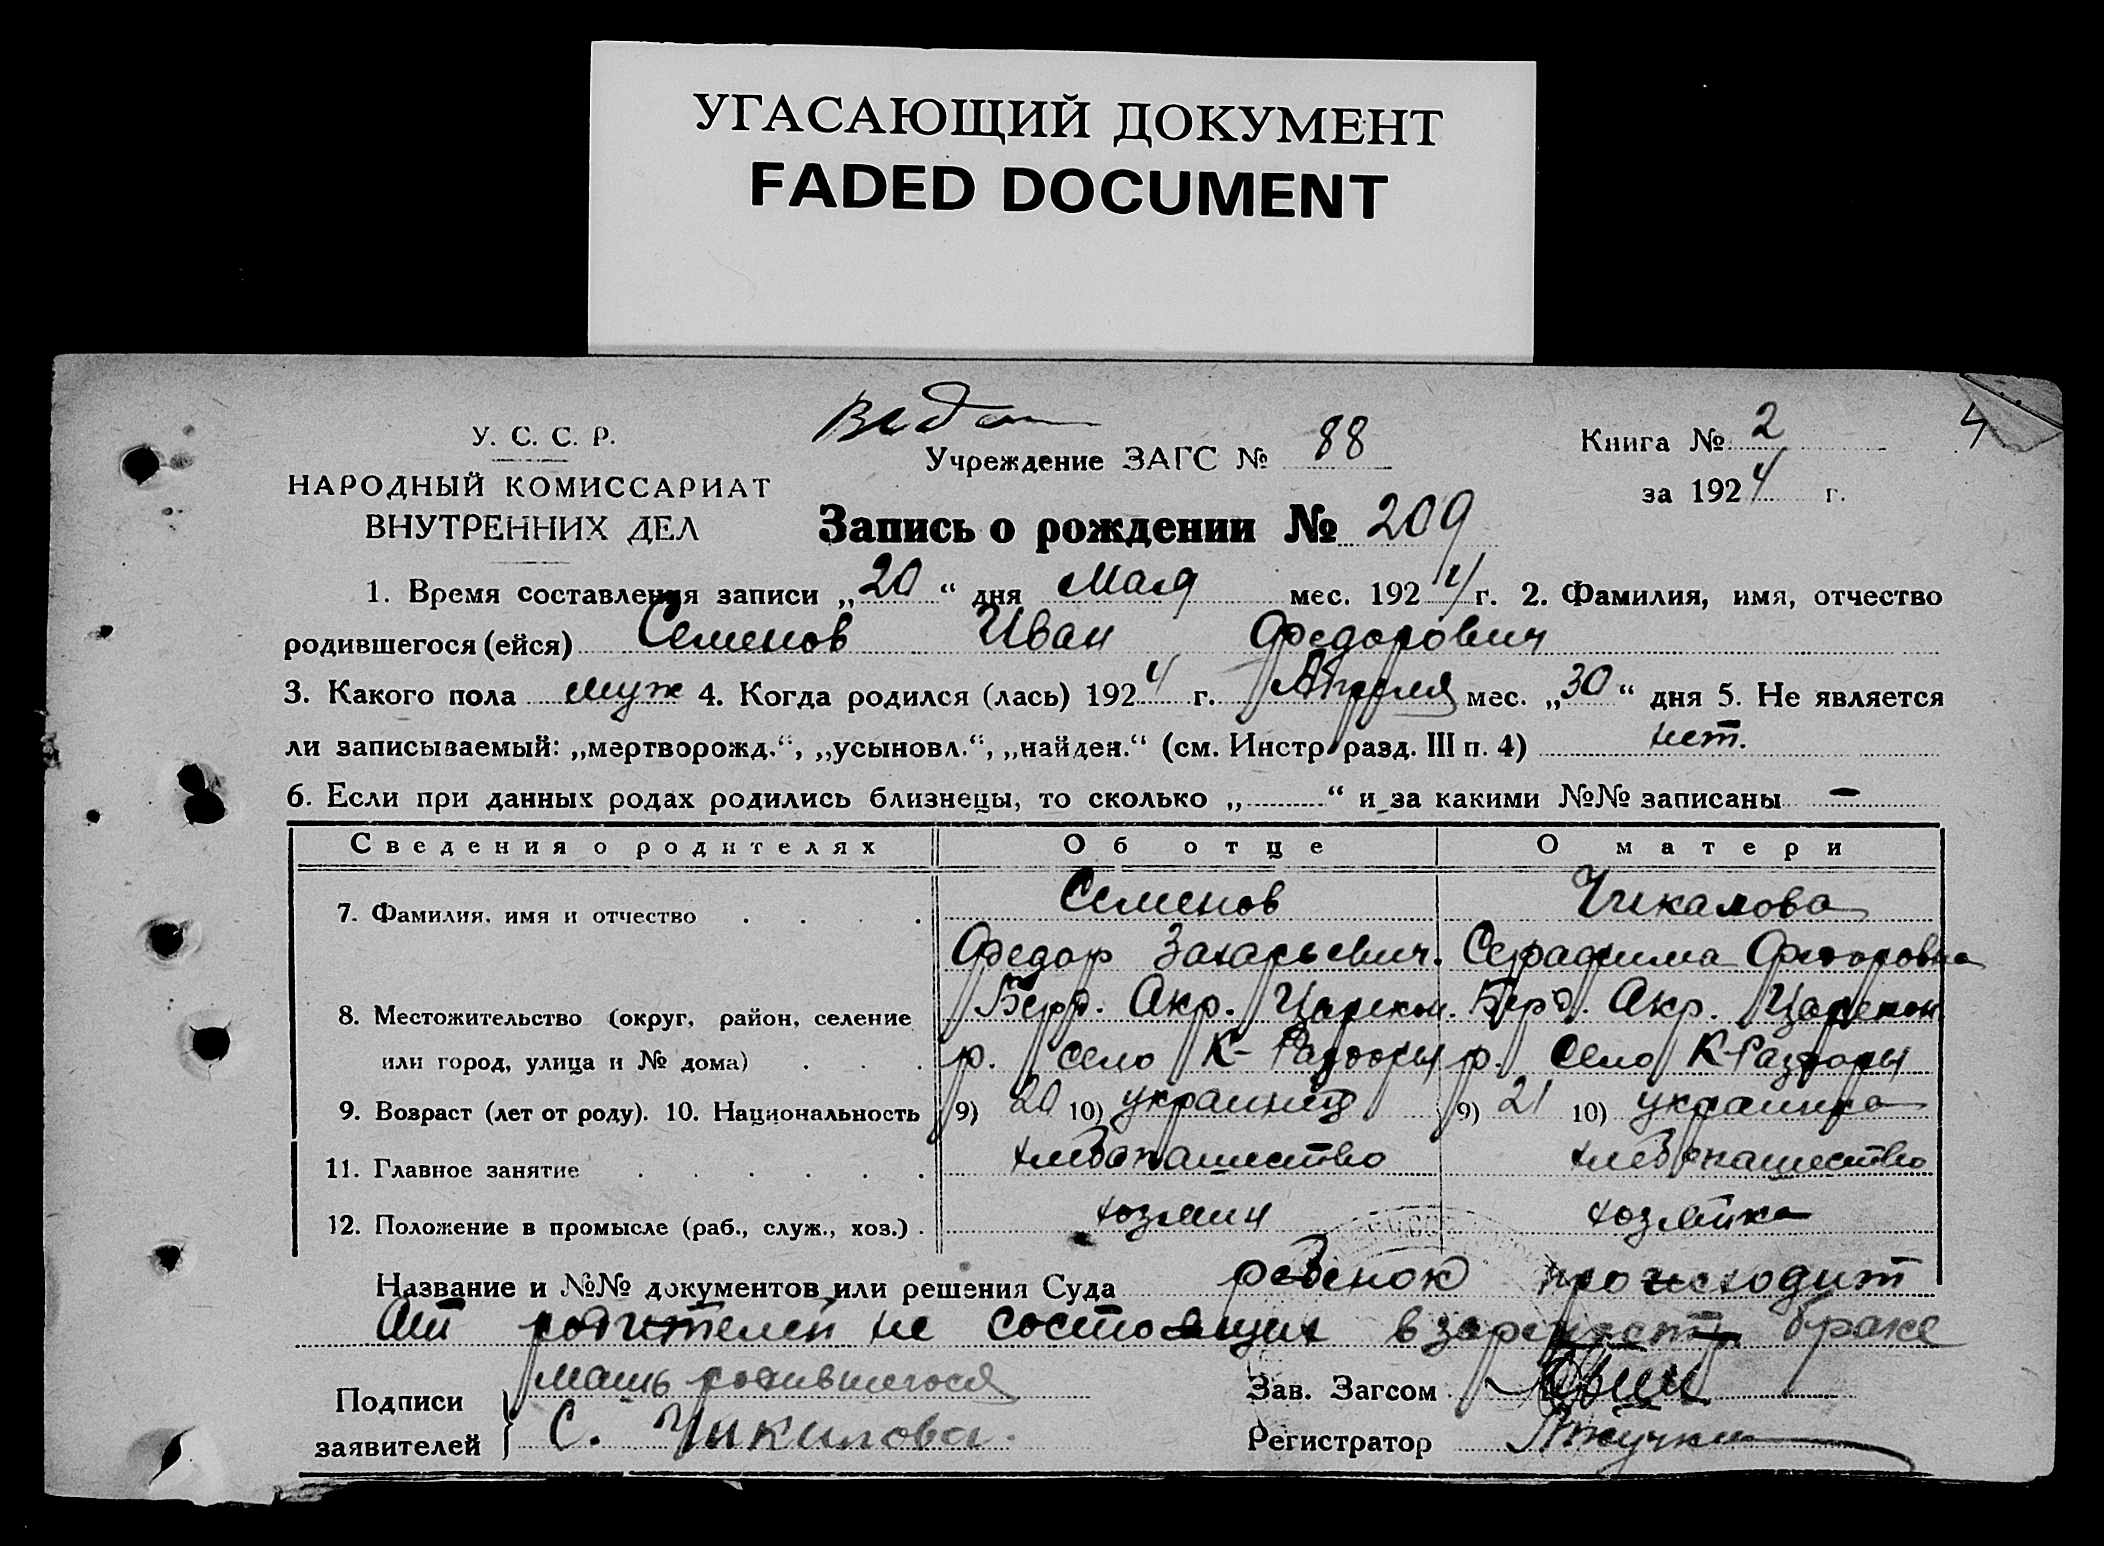 УГАСАЮЩИЙ ДОКУМЕНТ
FADED DOCUMENT
4
У. С. С. Р.
Учреждение ЗАГС № 88
Книга № 2
НАРОДНЫЙ КОМИССАРИАТ
за 1924 г.
ВНУТРЕННИХ ДЕЛ
Запись о рождении № 209
1. Время составления записи „20“ дня Мая мес. 1924 г. 2. Фамилия, имя, отчество
родившегося (ейся) Семенов Иван Федорович
3. Какого пола муж 4. Когда родился (лась) 1924 г. Апреля мес. „30“ дня 5. Не является
ли записываемый: „мертворожд.“, „усыновл.“, „найден.“ (см. Инстр. разд. III п. 4) нет.
6. Если при данных родах родились близнецы, то сколько „ “ и за какими №№ записаны —
Сведения о родителях Об отце О матери
7. Фамилия, имя и отчество Семенов Чикалова
Федор Захарьевич. Серафима Федоровна
8. Местожительство (округ, район, селение Берд. Окр. Царекон. Берд. Окр. Царекон
или город, улица и № дома) р. село К-Раздоры р. село К-Раздоры
9. Возраст (лет от роду). 10. Национальность 9) 20 10) украинец 9) 21 10) украинка
11. Главное занятие хлебопашество хлебопашество
12. Положение в промысле (раб., служ., хоз.) хозяин хозяйка
Название и №№ документов или решения Суда ребенок происходит
от родителей не состоящих в зарегист. браке
Подписи заявителей мать родившегося
С. Чикилова.
Зав. Загсом
Регистратор